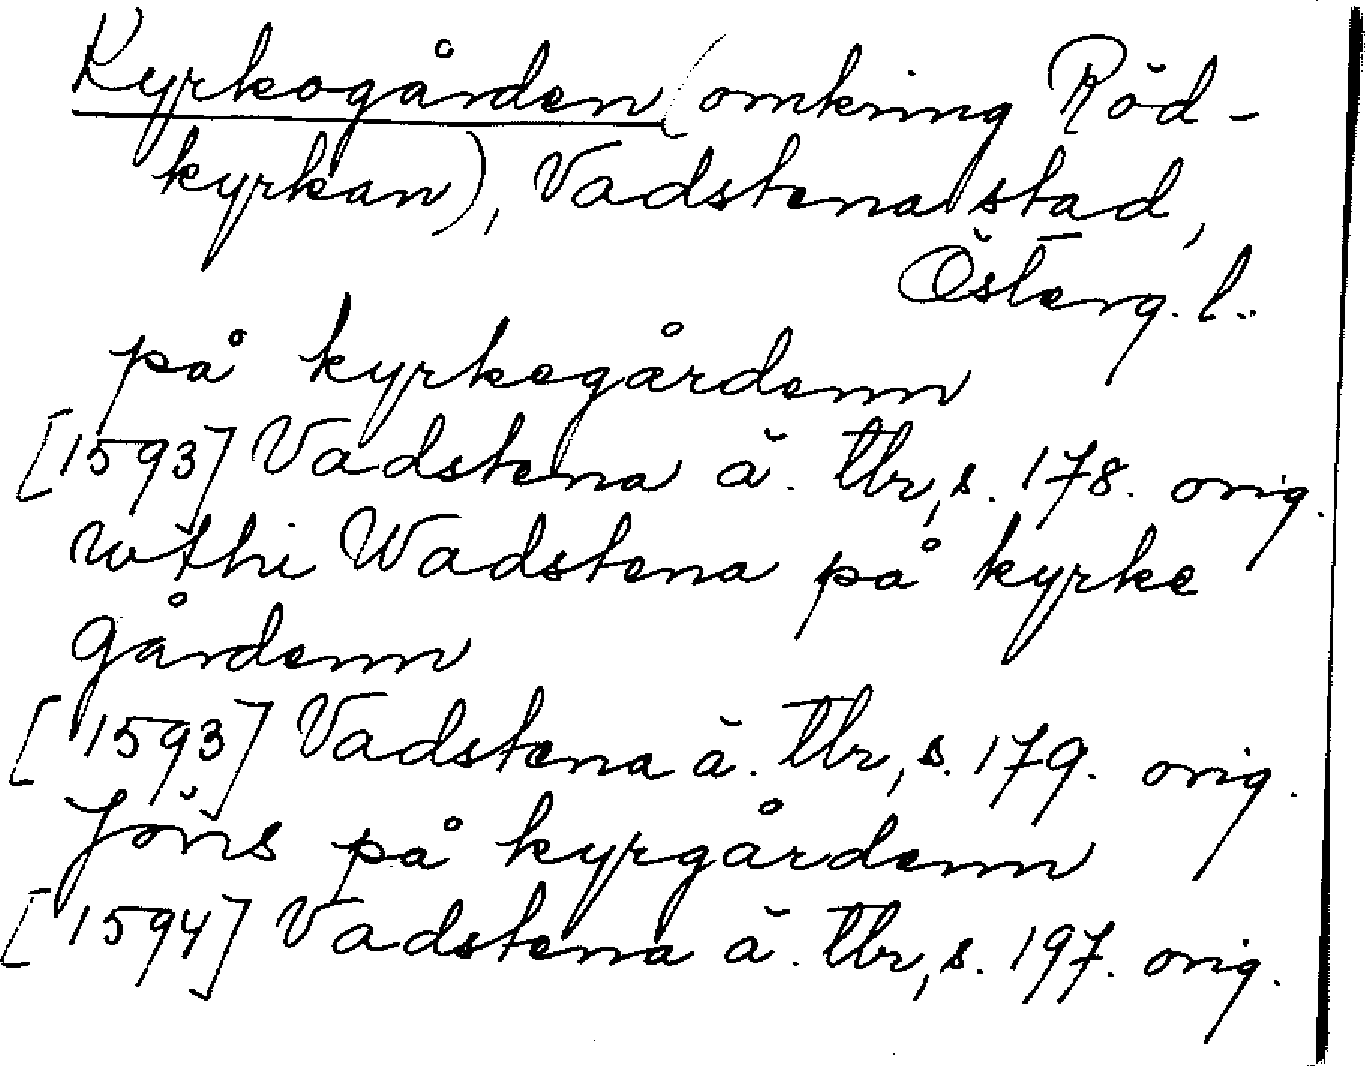 Kyrkogården (omkring Röd-
kyrkan), Vadstena stad,
Österg. l.
på kyrkegårdenn
[1593] Vadstena ä. tbr, s. 178. orig.
wthi Wadstena på kyrke
gårdenn
[1593] Vadstena ä. tbr, s. 179. orig.
Jöns på kyrgårdenn
[1594] Vadstena ä. tbr, s. 197. orig.